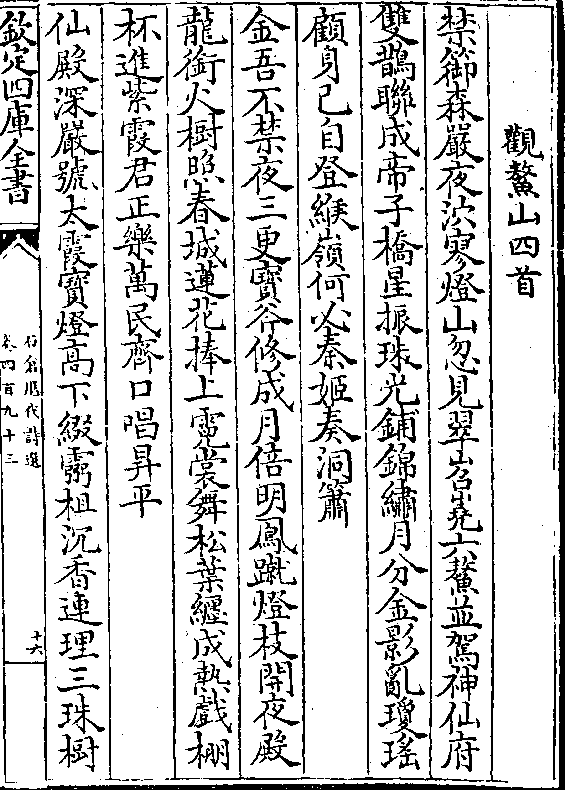 觀鰲山四首
禁籞森嚴夜泬寥燈山忽見翠岧嶤六鰲並駕神仙府
雙鵲聯成帝子橋星振珠光鋪錦繡月分金影亂瓊瑤
顧身已自登緱嶺何必秦姬奏洞簫
金吾不禁夜三更寶谷修成月倍明鳳蹴燈枝開夜殿
龍銜火樹照春城蓮花捧上霓裳舞松葉纏成熱戲棚
杯進紫霞君正樂萬民齊口唱昇平
仙殿深嚴號太霞寶燈高下綴 柤沉香連理三珠樹
欽定四庫全書
石倉歷代詩選
卷四百九十三
十六